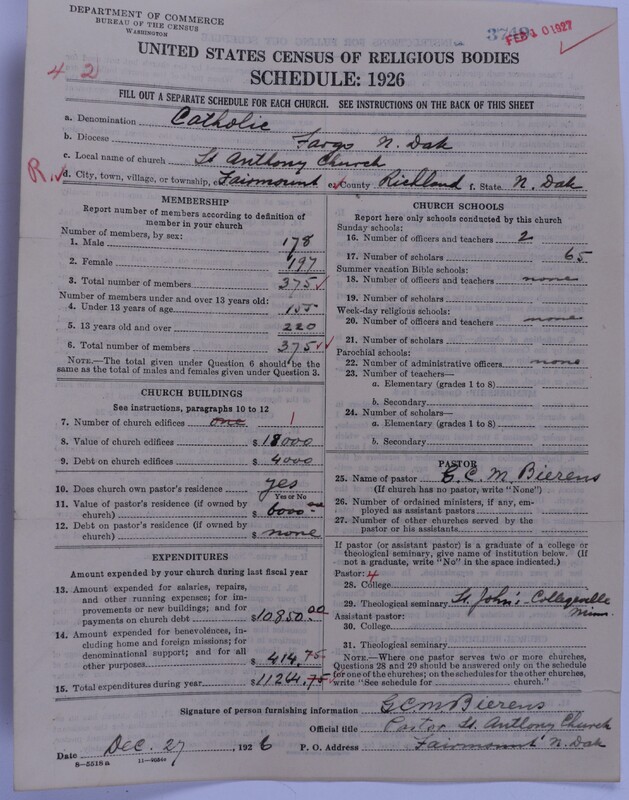 DEPARTMENT OF COMMERCE
BUREAU OF THE CENSUS
WASHINGTON
3749
FEB 10 1927
4 2
UNITED STATES CENSUS OF RELIGIOUS BODIES
SCHEDULE: 1926
FILL OUT A SEPARATE SCHEDULE FOR EACH CHURCH. SEE INSTRUCTIONS ON THE BACK OF THIS SHEET
a. Denomination Catholic
b. Diocese Fargo N. Dak
c. Local name of church St Anthony Church
R. d. City, town, village, or township, Fairmount e. County Richland f. State N. Dak
MEMBERSHIP
Report number of members according to definition of
member in your church
Number of members, by sex:
1. Male 178
2. Female 197
3. Total number of members 375
Number of members under and over 13 years old:
4. Under 13 years of age 155
5. 13 years old and over 220
6. Total number of members 375
NOTE.—The total given under Question 6 should be the
same as the total of males and females given under Question 3.
CHURCH BUILDINGS
See instructions, paragraphs 10 to 12
7. Number of church edifices one 1
8. Value of church edifices $18000
9. Debt on church edifices $4000
10. Does church own pastor's residence yes
Yes or No
11. Value of pastor's residence (if owned by
church) $6000.00
12. Debt on pastor's residence (if owned by
church) $none
EXPENDITURES
Amount expended by your church during last fiscal year
13. Amount expended for salaries, repairs,
and other running expenses; for im-
provements or new buildings; and for
payments on church debt $10850.00
14. Amount expended for benevolences, in-
cluding home and foreign missions; for
denominational support; and for all
other purposes $414.75
15. Total expenditures during year $11264.75
CHURCH SCHOOLS
Report here only schools conducted by this church
Sunday schools:
16. Number of officers and teachers 2
17. Number of scholars 65
Summer vacation Bible schools:
18. Number of officers and teachers none
19. Number of scholars
Week-day religious schools:
20. Number of officers and teachers none
21. Number of scholars
Parochial schools:
22. Number of administrative officers none
23. Number of teachers—
a. Elementary (grades 1 to 8)
b. Secondary
24. Number of scholars—
a. Elementary (grades 1 to 8)
b. Secondary
PASTOR
25. Name of pastor G. C. M. Bierens
(If church has no pastor, write "None")
26. Number of ordained ministers, if any, em-
ployed as assistant pastors
27. Number of other churches served by the
pastor or his assistants
If pastor (or assistant pastor) is a graduate of a college or
theological seminary, give name of institution below. (If
not a graduate, write "No" in the space indicated.)
Pastor: 4
28. College
29. Theological seminary St. John's Collegeville
Minn.
Assistant pastor:
30. College
31. Theological seminary
NOTE.—Where one pastor serves two or more churches,
Questions 28 and 29 should be answered only on the schedule
for one of the churches; on the schedules for the other churches,
write "See schedule for church."
Signature of person furnishing information G C M Bierens
Official title Pastor St. Anthony Church
Date Dec. 27, 1926 P. O. Address Fairmount N. Dak
8-5518a